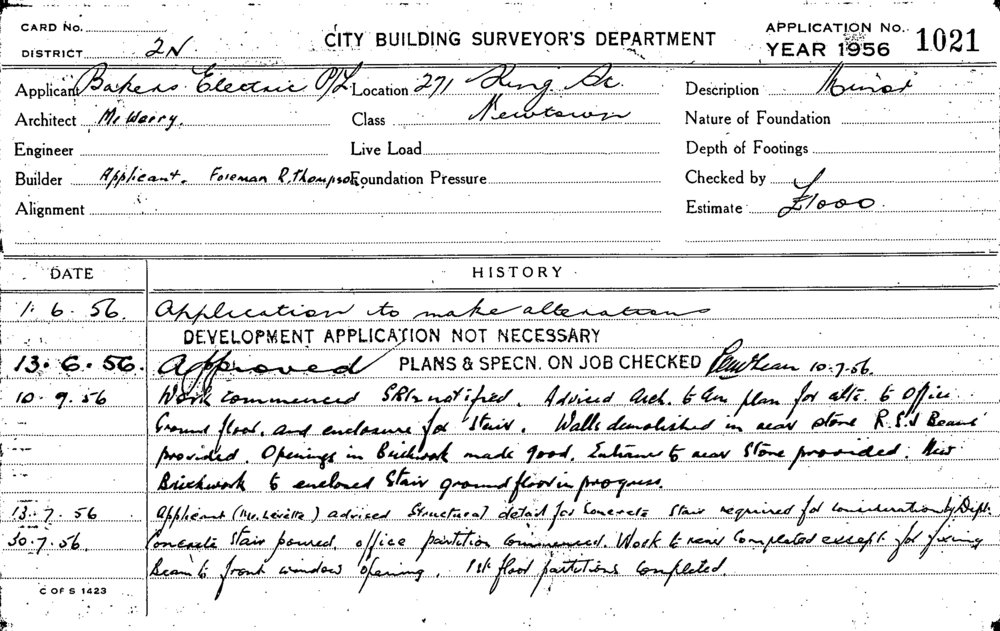 CARD No.
DISTRICT 2N
CITY BUILDING SURVEYOR'S DEPARTMENT
APPLICATION No. 1021
YEAR 1956
Applicant Bakers Electric P/L Location 271 King St. Description Minor
Architect Mr Class Newtown Nature of Foundation
Engineer Live Load Depth of Footings
Builder Applicant. Foreman R. Thompson Foundation Pressure Checked by
Alignment Estimate £1000
DATE HISTORY
1.6.56. Application to make alterations
DEVELOPMENT APPLICATION NOT NECESSARY
13.6.56. Approved PLANS & SPECN. ON JOB CHECKED 10.7.56.
10.9.56 Work commenced notified. Advised Arch. to plan for alts. to Office
Ground floor. and enclosure for Stair. Walls demolished in rear store R.S.J Beams
provided. Openings in Brickwork made good. Entrance to rear Store provided. New
Brickwork to enclosed Stair ground floor in progress.
13.7.56 Applicant (Mr. ) advised Structural detail for Concrete Stair required for consideration by Dept.
30.7.56. Concrete Stair poured. office partition commenced. Work to rear Completed except for fixing
Beam to front window opening. 1st floor partitions completed.
C OF S 1423